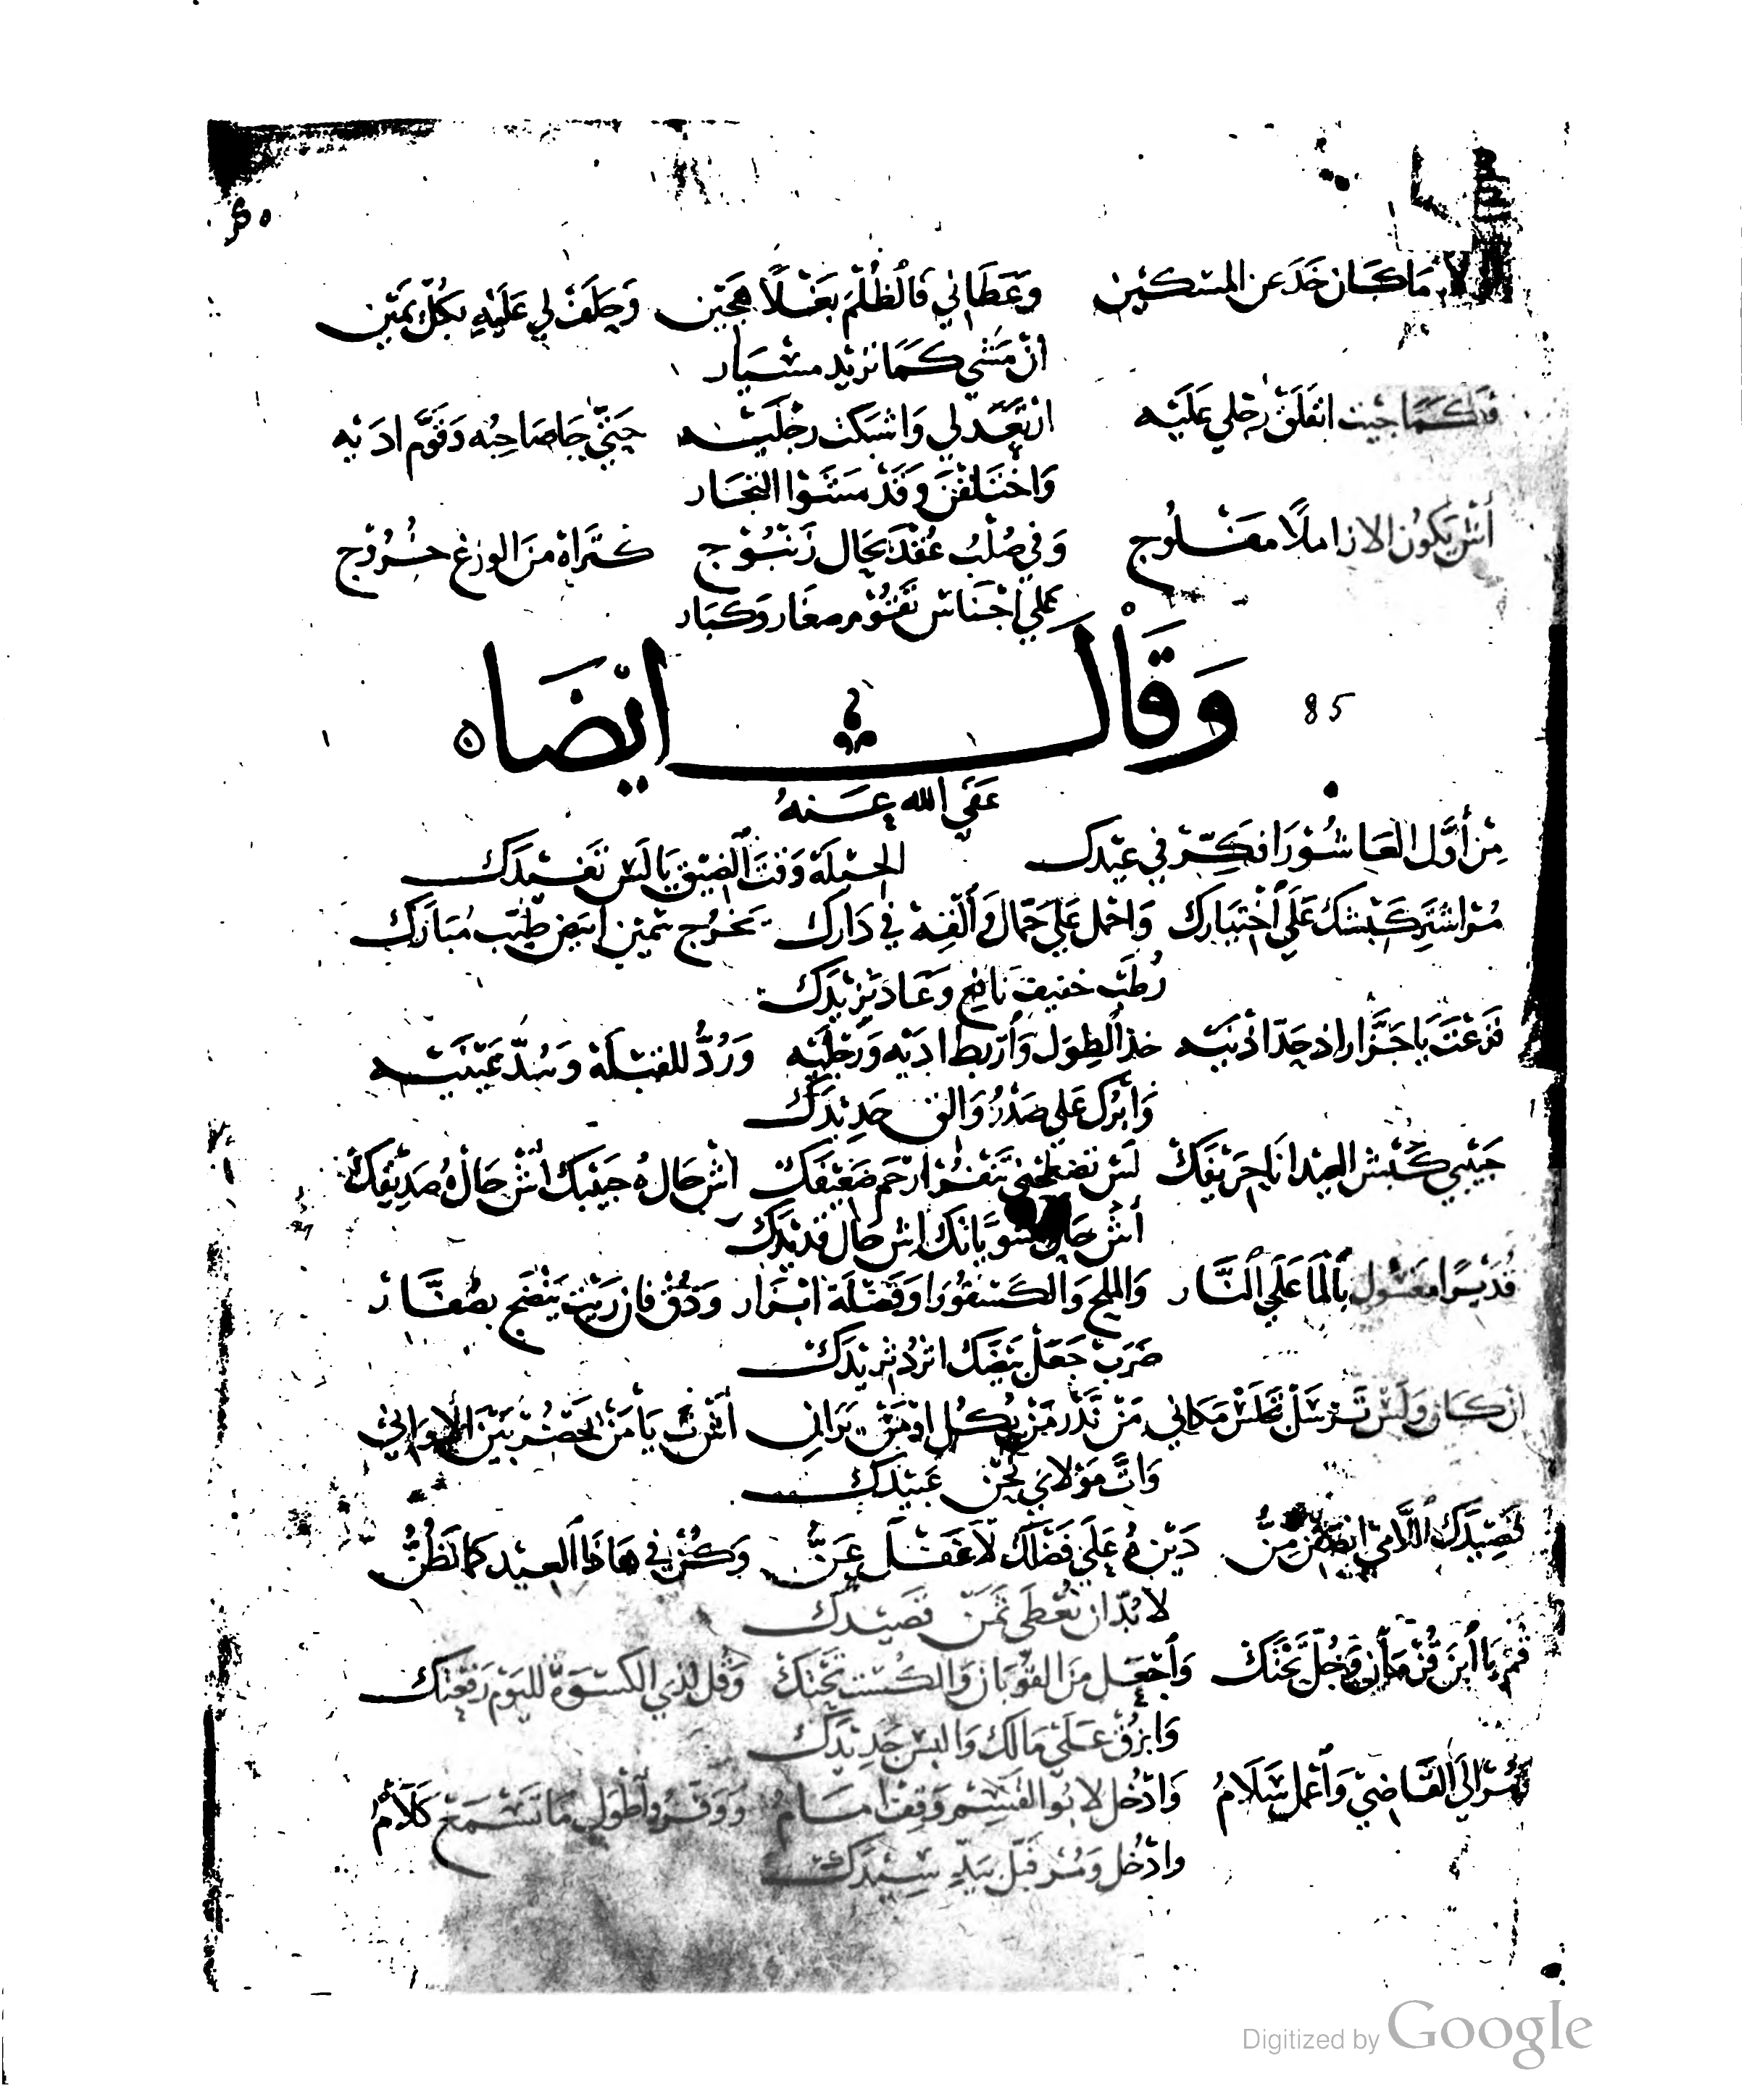 ٤٥
لا ما كان خَدَ عن المسكين وَعَطَاني فَالظُلْم بَغْلاً هجين وَحلَفْ لي عَلَيْهِ بكُلّ يَمين
أنْ مَشي كمَا نريد مشيَار
فكمَا جيت انفلَقْ رجلي عَلَيْه ارتعَد لي وَاشبَكت رجْلَيْه حَتى جَا صَاحِبُه وَقوَّم ادَيه
وَاختَلفْنَ وَقَدْ سَنَوا النجَار
أش يكون الا زاملاً مفْلُوج وَفي صُلْبُ عُقْدَ بحَال زنبُوج كتراهْ منَ الوزغ خرُوج
عَلي اجْنَاس تقُوم صغَار وَكبَار
وَقَالَ ايْضَاه
85
عَفي الله عَنهُ
مِنْ أوَّل العَاشُورَا فكِّرْ في عِيْدك الحيلَة وَقتَ الضِيق يَا لَسْ تفيْدَك
مُرْ اشتَرِ كبْشكْ عَلَى اخْتيَارك وَاحْمل عَلَي حَمّال وَألِّفهْ في دَارك يَخرُج سَمين ابيَض طيّب مُبَارَك
رُطَب خفيف نافع وَعَاد يَزيْدَك
فَزعْتَ يَا جَزَّار اذ حَدّ اذنَيه خذ الطِوَل وَاربط ادَيْه وَرجْلَيْه وَرُدُّ للقبْلَهْ وَسُدّ عَيْنَيه
وَابْرُك عَلي صَدرُ وَالق حَدِيدَك
حَبيبي كَبْش العيد انا حَريفَكْ لَسْ تنطحني تَنفَرْ ارْحَم ضَعيْفَكْ اش حَالُ جَنْبك اشْ حَالْ صَدِيْفك
أشْ حَال شوَّيانك اشْ حَال قديْدَك
قُديْرًا مغسُول بالْمَا عَلَي النَّار وَالملح وَالكسْفُورَا وَقَصْلَة ابْزَار وَدُقْ فان رَيْت يَنْضج بصُفَّار
ضَرَبْ جَعَل بَيْضَك اثردْ ثريدَك
ان كان وَلَسْ تَرسَل تَجْلَسْ مَكاني مَنْ نَدْر مَنْ يكُل اوْ مَنْ يَرَاني أشْ نَ يَا مَنْ نَحْضُر بَيْنَ الاوَاني
وَاتَّ مَوْلاي نحْن عَبيْدَك
قَصِيدَك اللامي انصَفْن منُّ دَيْن هُ عَلَي فَضْلَك لا غفَل عَنُّ وَكنْ في هَاذا العيد كما نَظُنُّ
لا بُدّ ان نعْطَي ثمَن قصَيْدَك
قُمْ يَا أبنَ قزمَان وَخل بَخْتَك وَاجْعَل منَ القوُبَان وَالكُسْت تحْتَكْ وَقل لذي الكسْوَهْ لليَوْم رَفَعْتَك
وَابزُقْ عَلَي مَالك وَالبسْ جَدِيْدَك
مُرْ الى القَاضي وَاعْمل سَلامُ وَادْخُل لابُو القسِم وَقِفْ امَامُ وَوَقرُ وأطوَل مَا تسْمَعْ كَلاَمُ
وادْخُل وَمُرْ قبّل يَدَّ سِيدَك
Digitized by Google